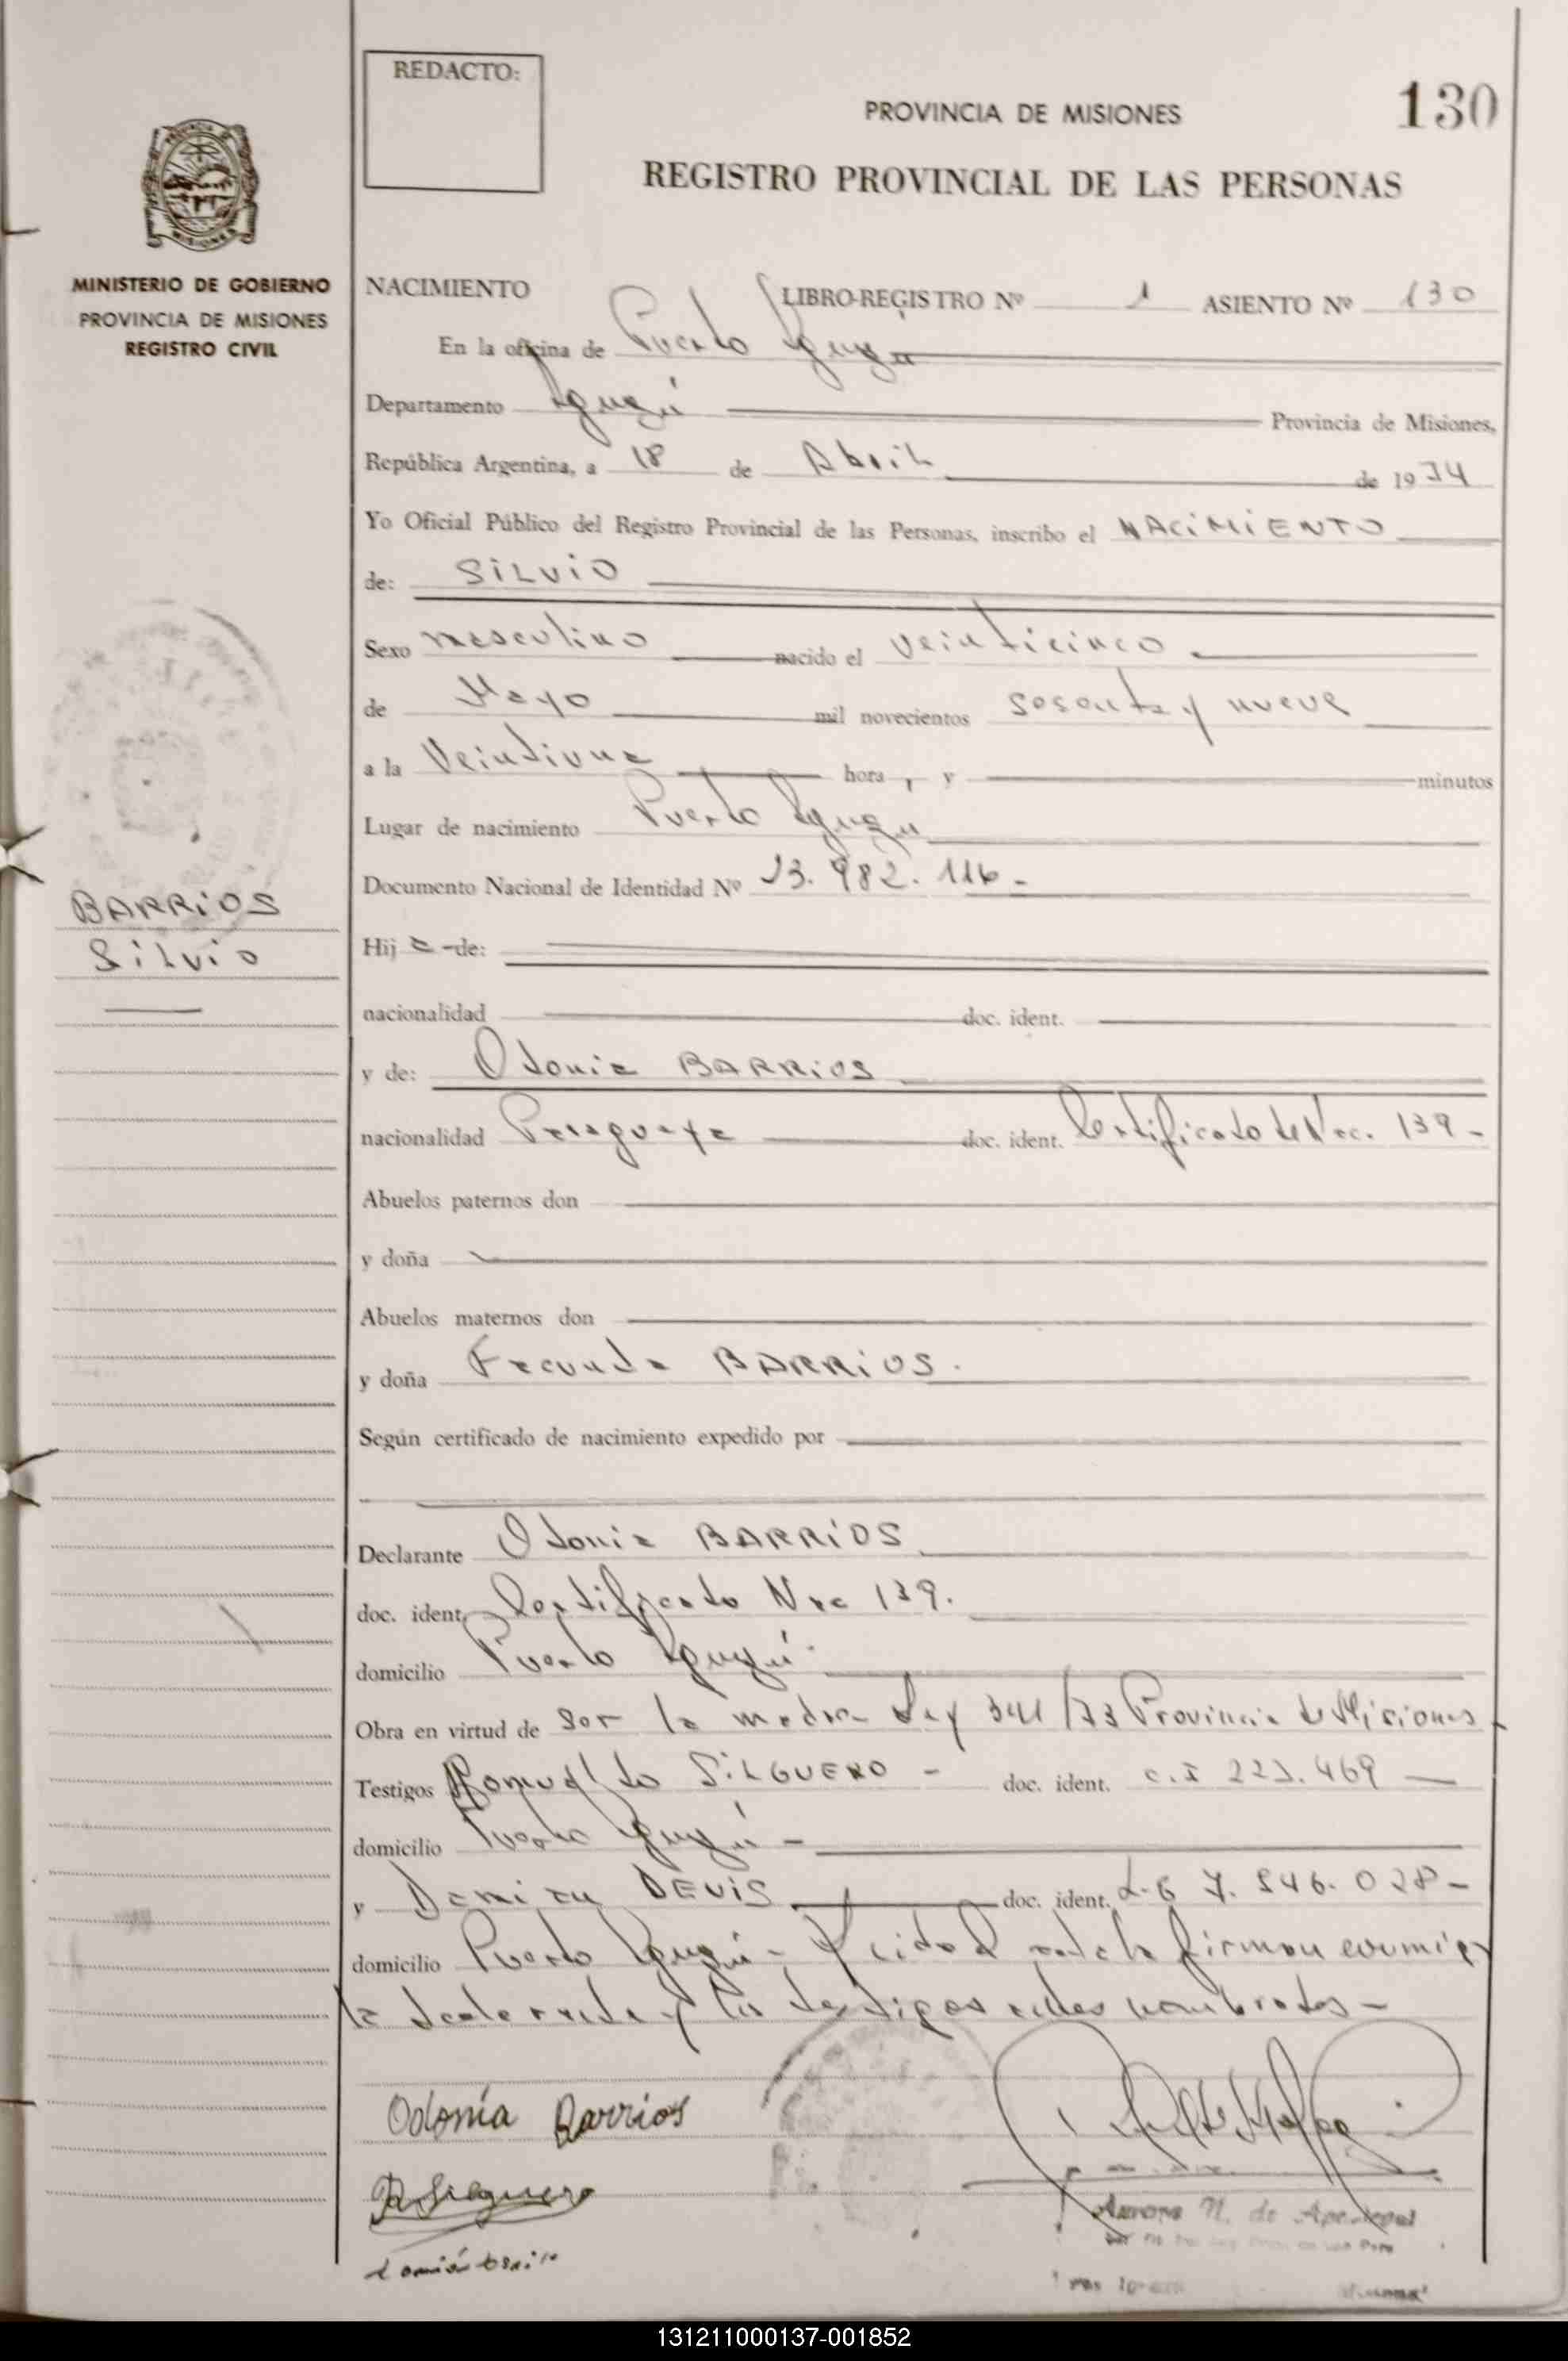 REDACTO:
PROVINCIA DE MISIONES
130
REGISTRO PROVINCIAL DE LAS PERSONAS
MINISTERIO DE GOBIERNO
PROVINCIA DE MISIONES
REGISTRO CIVIL
NACIMIENTO LIBRO-REGISTRO Nº 1 ASIENTO Nº 130
En la oficina de Puerto Iguazú
Departamento Iguazú Provincia de Misiones,
República Argentina, a 18 de Abril de 1974
Yo Oficial Público del Registro Provincial de las Personas, inscribo el NACIMIENTO
de: SILVIO
Sexo masculino nacido el veinticinco
de Mayo mil novecientos sesenta y nueve
a la Veintiuna hora, y minutos
Lugar de nacimiento Puerto Iguazú
Documento Nacional de Identidad Nº 23.982.116-
BARRIOS
Silvio
Hij o de:
nacionalidad doc. ident.
y de: Odonia BARRIOS
nacionalidad Paraguaya doc. ident. Certificado de Nac. 139-
Abuelos paternos don
y doña
Abuelos maternos don
y doña Facunda BARRIOS.
Según certificado de nacimiento expedido por
Declarante Odonia BARRIOS
doc. ident. Certificado Nac 139.
domicilio Puerto Iguazú.
Obra en virtud de ser la madre Ley 341/73 Provincia de Misiones
Testigos Romualdo SILGUERO - doc. ident. C.I 223.469
domicilio Puerto Iguazú -
y DEVIS doc. ident. L.E 7.546.028-
domicilio Puerto Iguazú - Leída el acta la firman conmigo
la declarante y los testigos antes nombrados -
Odonia Barrios
R Silguero
Aurora N. de
131211000137-001852